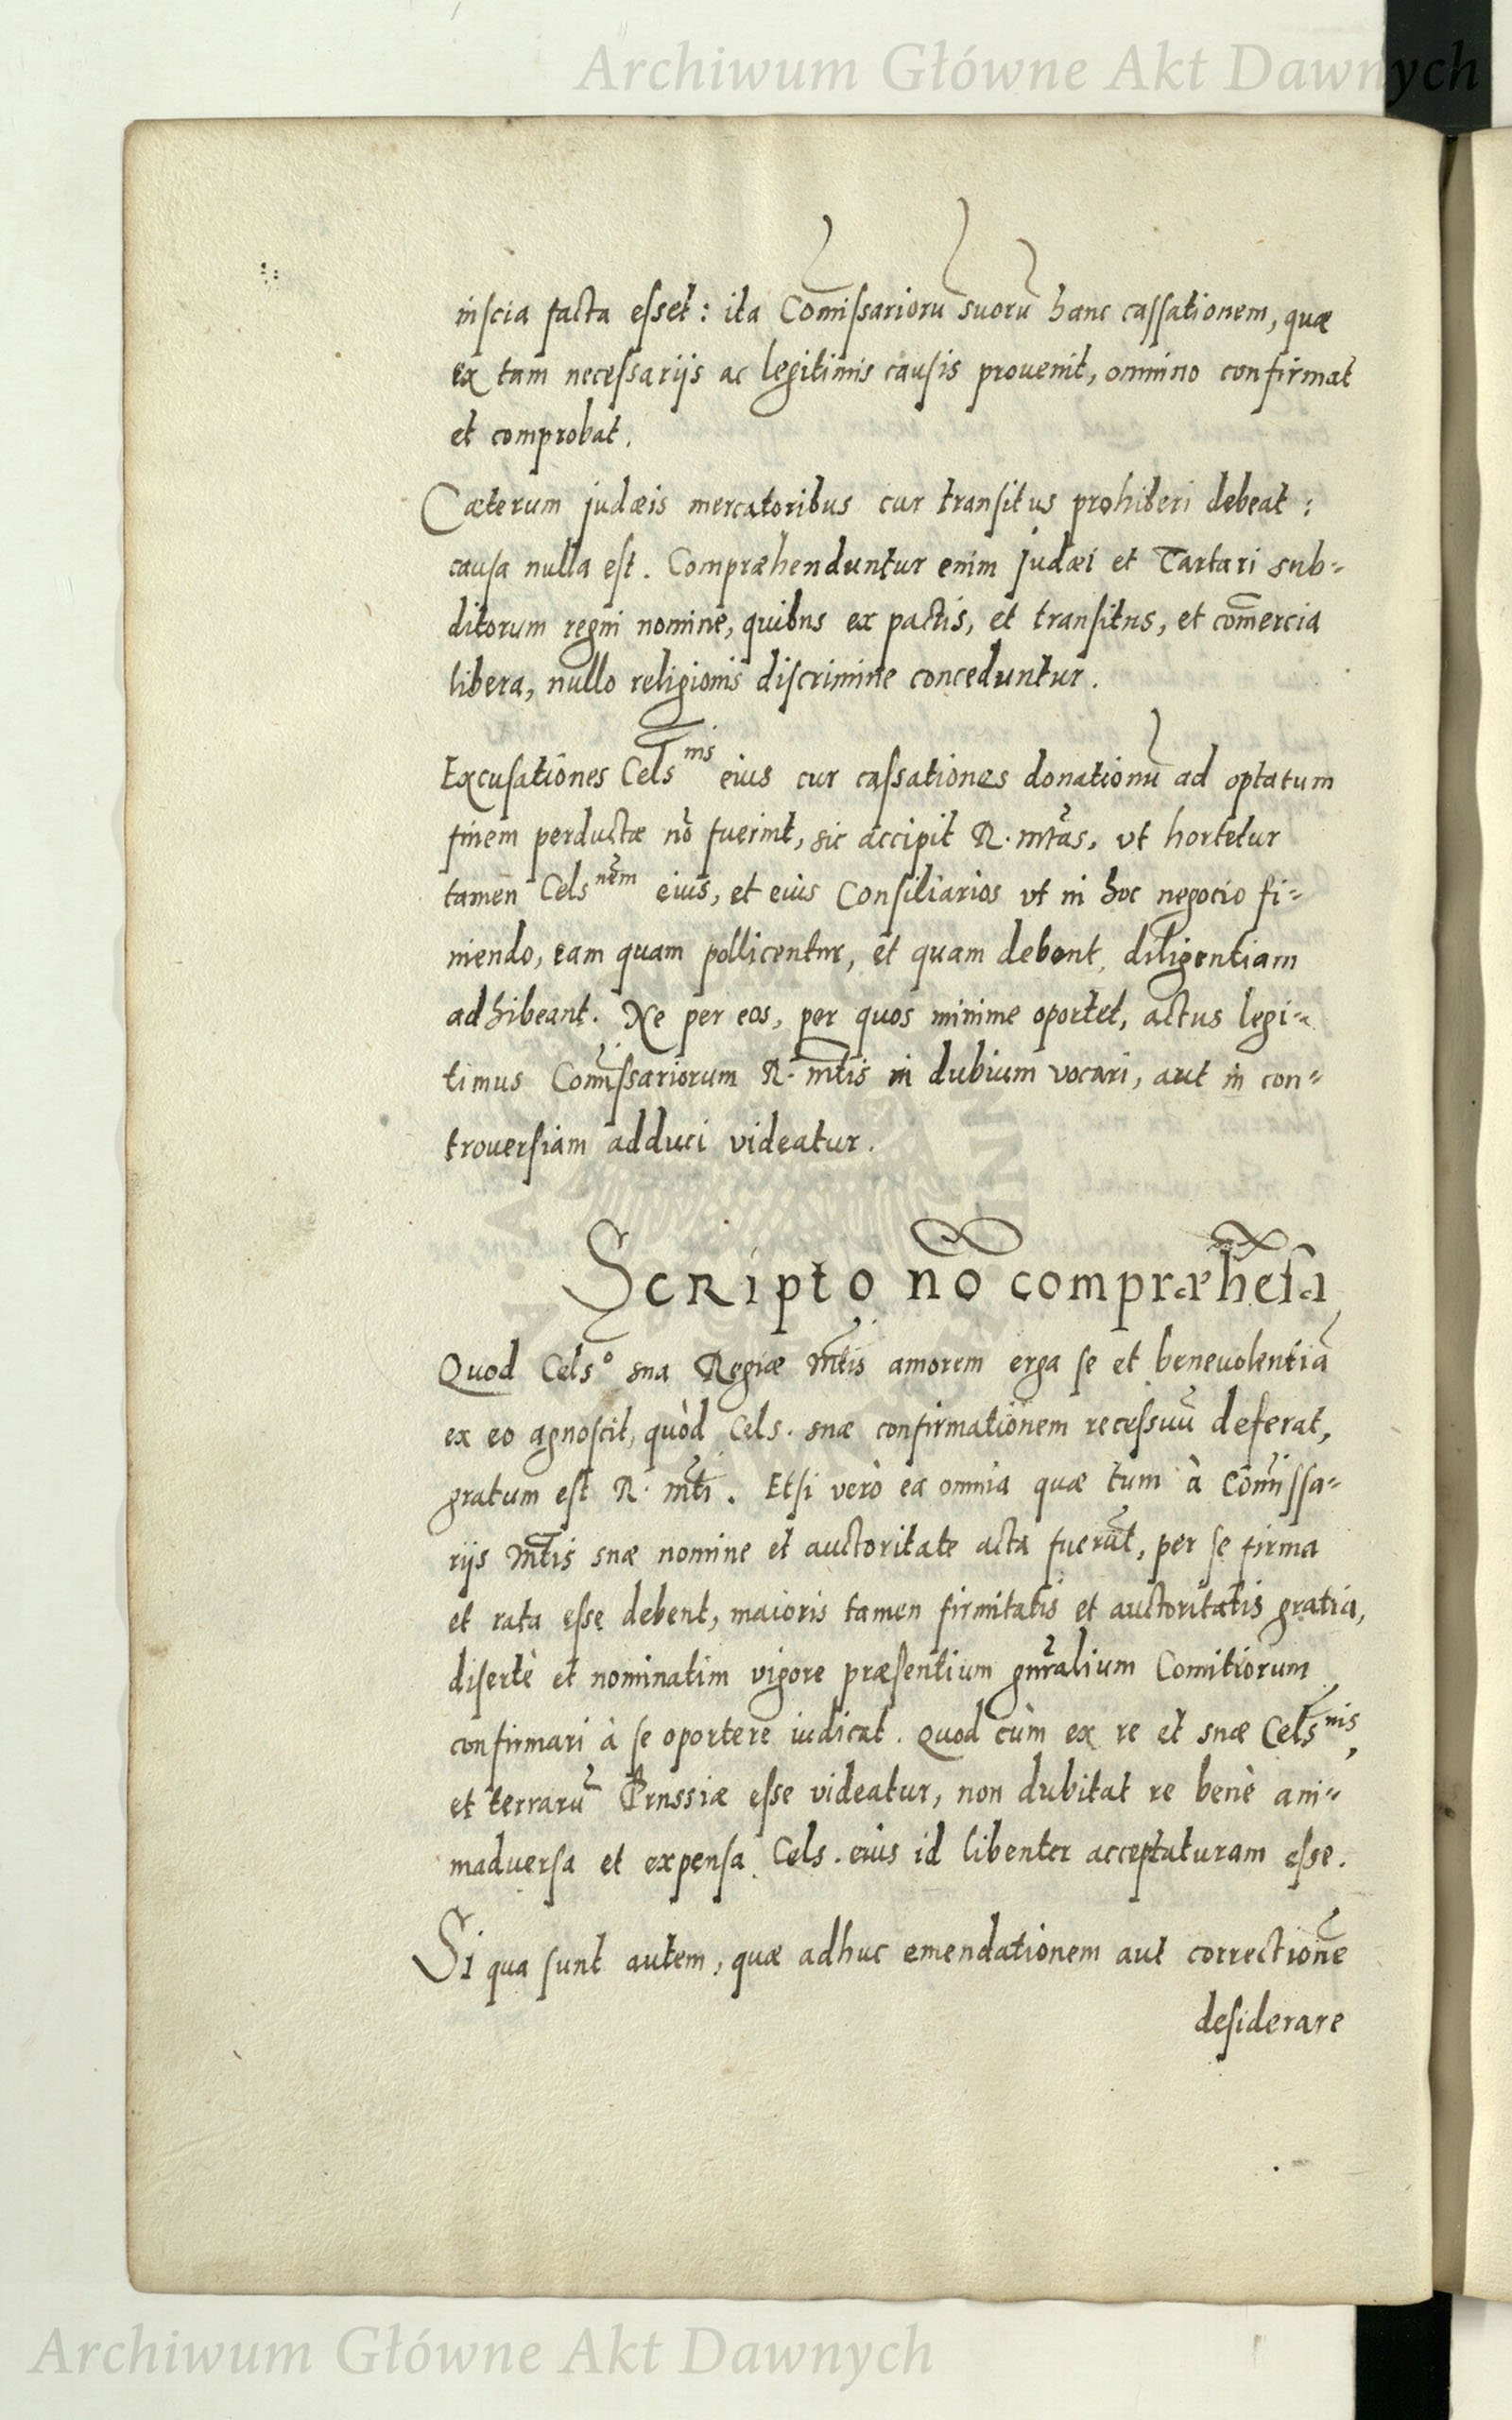 Archiwum Główne Akt Dawnych
inscia facta esset: ita Com̃issarioru᷃ suoru᷃ hanc cassationem, quæ
ex tam necessarijs ac legitimis causis prouenit, omnino confirmat
et comprobat.
Cæterum judæis mercatoribus cur transitus prohiberi debeat:
causa nulla est. Compræhenduntur enim Judæi et Tartari sub=
ditorum regni nomine, quibus ex pactis, et transitus, et com̃ercia
libera, nullo religionis discrimine conceduntur.
Excusationes Cels^nis eius cur cassationes donationũ ad optatum
finem perductæ nõ fuerint, sic accipit R. mtãs, vt hortetur
tamen Cels^nem eius, et eius Consiliarios vt in hoc negocio fi=
niendo, eam quam pollicentur, et quam debent, diligentiam
adhibeant. Ne per eos, per quos minime oportet, actus legi=
timus Com̃issariorum R. mt̃is in dubium vocari, aut in con=
trouersiam adduci videatur.
Scripto nõ compræhẽsa
Quod Cels^o sua Regiæ Mt̃is amorem erga se et beneuolentiã
ex eo agnoscit, quòd Cels. suæ confirmationem recessuũ deferat,
gratum est R. mt̃i. Etsi verò ea omnia quæ tum à Com̃issa=
rijs Mt̃is suæ nomine et auctoritate acta fuerũt, per se firma
et rata esse debent, maioris tamen firmitatis et auctoritatis gratia,
disertè et nominatim vigore præsentium gnr̃alium Comitiorum
confirmari à se oportere iudicat. Quod cùm ex re et suæ Cels^nis,
et terrarũ Prussiæ esse videatur, non dubitat re benè ani=
maduersa et expensa Cels. eius id libenter acceptaturam esse.
Si qua sunt autem, quæ adhuc emendationem aut correctionẽ
desiderare
Archiwum Główne Akt Dawnych